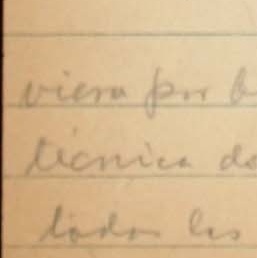 viera por
técnica de
todas las